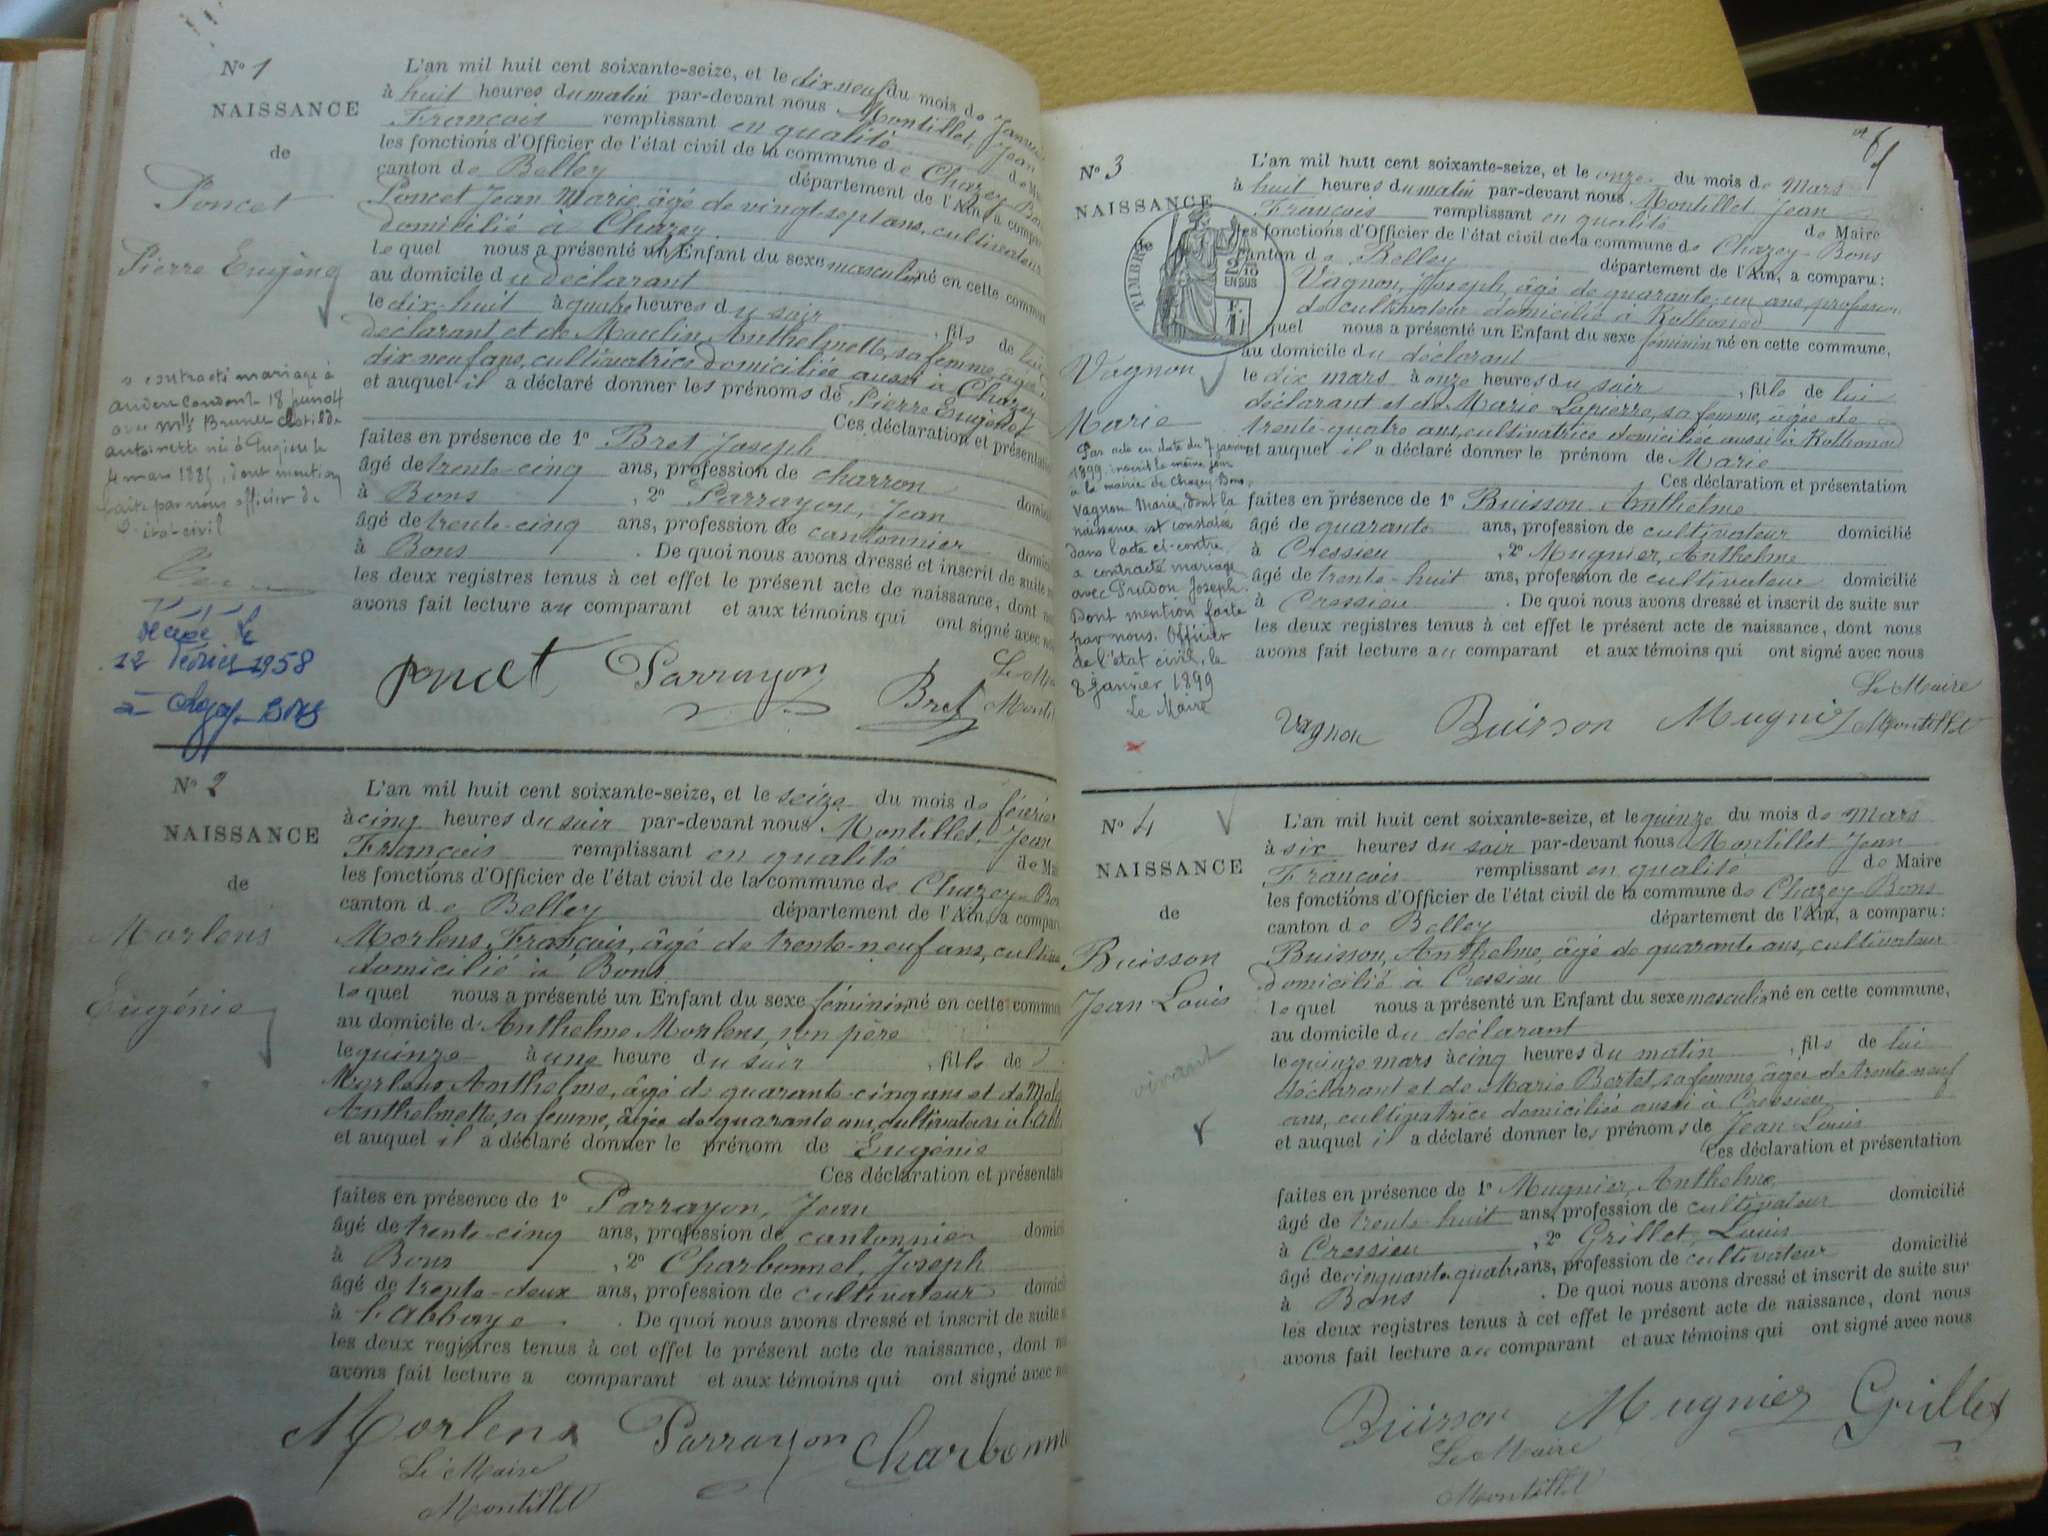 N° 1
NAISSANCE
de
Poncet
Pierre Eugène
a contracté mariage à
Andert Condon le 18 juin 04
avec Mlle Brunet Clotilde
Antoinette née à Pugieu le
4 mars 1881, dont mention
faite par nous officier de
l'état-civil
décédé le
12 Février 1958
à Chazey-Bons
L'an mil huit cent soixante-seize, et le dix neuf du mois de Janvier
à huit heures du matin par-devant nous Montillet, Jean
François remplissant en qualité de Ma
les fonctions d'Officier de l'état civil de la commune de Chazey-Bons
canton de Belley département de l'Ain, a compa
Poncet Jean Marie, âgé de vingt-sept ans, cultivateur
domicilié à Chazey
lequel nous a présenté un Enfant du sexe masculin né en cette commu
au domicile du déclarant
le dix-huit à quatre heures du soir, fils de lui
déclarant et de Moulin Anthelmette, sa femme, âgée
dix neuf ans, cultivatrice domiciliée aussi à Chazey
et auquel il a déclaré donner les prénoms de Pierre Eugène
Ces déclaration et présentati
faites en présence de 1° Bret Joseph
âgé de trente-cinq ans, profession de charron domici
à Bons, 2° Parrayon, Jean
âgé de trente-cinq ans, profession de cantonnier domici
à Bons. De quoi nous avons dressé et inscrit de suite s
les deux registres tenus à cet effet le présent acte de naissance, dont nou
avons fait lecture au comparant et aux témoins qui ont signé avec nou
Poncet Parrayon Bret
Le Ma
Montil
N° 2
NAISSANCE
de
Morlens
Eugénie
L'an mil huit cent soixante-seize, et le seize du mois de février
à cinq heures du soir par-devant nous Montillet, Jean
François remplissant en qualité de Ma
les fonctions d'Officier de l'état civil de la commune de Chazey-Bo
canton de Belley département de l'Ain, a compar
Morlens, François, âgé de trente-neuf ans, cultiva
domicilié à Bons
lequel nous a présenté un Enfant du sexe féminin né en cette commun
au domicile d'Anthelme Morlens, son père
le quinze à une heure du soir, fille de
Morlens Anthelme, âgé de quarante-cinq ans et de
Anthelmette, sa femme, âgée de quarante ans, cultivateurs à l'abb
et auquel il a déclaré donner le prénom de Eugénie
Ces déclaration et présentati
faites en présence de 1° Parrayon, Jean
âgé de trente-cinq ans, profession de cantonnier domici
à Bons, 2° Charbonnel, Joseph
âgé de trente-deux ans, profession de cultivateur domici
à l'abbaye. De quoi nous avons dressé et inscrit de suite s
les deux registres tenus à cet effet le présent acte de naissance, dont n
avons fait lecture a comparant et aux témoins qui ont signé avec n
Morlens Parrayon Charbonne
Le Maire
Montillet
N° 3
NAISSANCE
de
TIMBRE
2/10
EN SUS
Vagnon
Marie
Par acte en date du 7 janvier
1899, inscrit le même jour
à la mairie de Chazey-Bons,
Vagnon Marie, dont la
naissance est constatée
dans l'acte ci-contre
a contracté mariage
avec Prudon Joseph.
Dont mention faite
par nous, Officier
de l'état civil, le
8 janvier 1899
Le Maire
L'an mil huit cent soixante-seize, et le onze du mois de Mars
à huit heures du matin par-devant nous Montillet Jean
François remplissant en qualité de Maire
les fonctions d'Officier de l'état civil de la commune de Chazey-Bons
canton de Belley département de l'Ain, a comparu :
Vagnon, Joseph, âgé de quarante-un ans, profession
de cultivateur domicilié à Rothonod
quel nous a présenté un Enfant du sexe féminin né en cette commune,
au domicile du déclarant
le dix mars à onze heures du soir, fille de lui
déclarant et de Marie Lapierre, sa femme, âgée de
trente-quatre ans, cultivatrice domiciliée aussi à Rothonod
et auquel il a déclaré donner le prénom de Marie
Ces déclaration et présentation
faites en présence de 1° Buisson, Anthelme
âgé de quarante ans, profession de cultivateur domicilié
à Cressieu, 2° Mugnier, Anthelme
âgé de trente-huit ans, profession de cultivateur domicilié
à Cressieu. De quoi nous avons dressé et inscrit de suite sur
les deux registres tenus à cet effet le présent acte de naissance, dont nous
avons fait lecture au comparant et aux témoins qui ont signé avec nous
Le Maire
Vagnon Buisson Mugnier Montillet
N° 4
NAISSANCE
de
Buisson
Jean Louis
vivant
L'an mil huit cent soixante-seize, et le quinze du mois de Mars
à six heures du soir par-devant nous Montillet Jean
François remplissant en qualité de Maire
les fonctions d'Officier de l'état civil de la commune de Chazey-Bons
canton de Belley département de l'Ain, a comparu :
Buisson, Anthelme, âgé de quarante ans, cultivateur
domicilié à Cressieu
lequel nous a présenté un Enfant du sexe masculin né en cette commune,
au domicile du déclarant
le quinze mars à cinq heures du matin, fils de lui
déclarant et de Marie Bertet, sa femme, âgée de trente neuf
ans, cultivatrice domiciliée aussi à Cressieu
et auquel il a déclaré donner les prénoms de Jean Louis
Ces déclaration et présentation
faites en présence de 1° Mugnier, Anthelme,
âgé de trente-huit ans, profession de cultivateur domicilié
à Cressieu, 2° Grillet, Louis
âgé de cinquante-quatre ans, profession de cultivateur domicilié
à Bons. De quoi nous avons dressé et inscrit de suite sur
les deux registres tenus à cet effet le présent acte de naissance, dont nous
avons fait lecture au comparant et aux témoins qui ont signé avec nous
Buisson Mugnier Grillet
Le Maire
Montillet